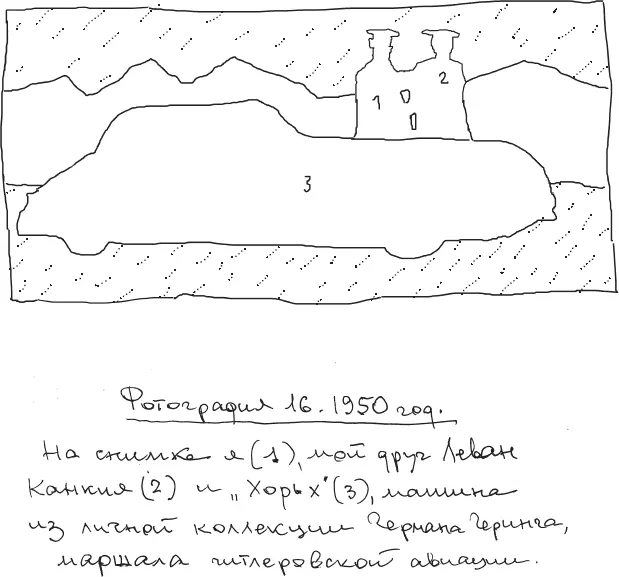 1
2
3
Фотография 16. 1950 год.
На снимке я (1), мой друг Леван
Канкия (2) и „Хорьх" (3), машина
из личной коллекции Германа Геринга,
маршала гитлеровской авиации.